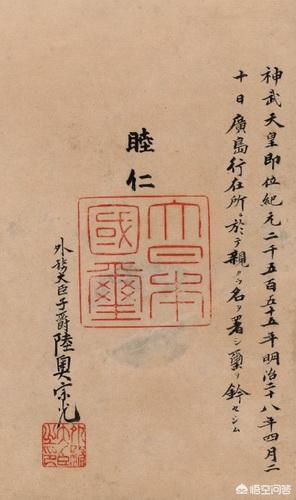 神武天皇即位紀元二千五百五十五年明治二十八年四月二
十日廣島行在所ニ於テ親ラ名ヲ署シ璽ヲ鈐セシム
睦仁
大日本
國璽
外務大臣子爵陸奥宗光
外務
大臣
之印
悟空问答